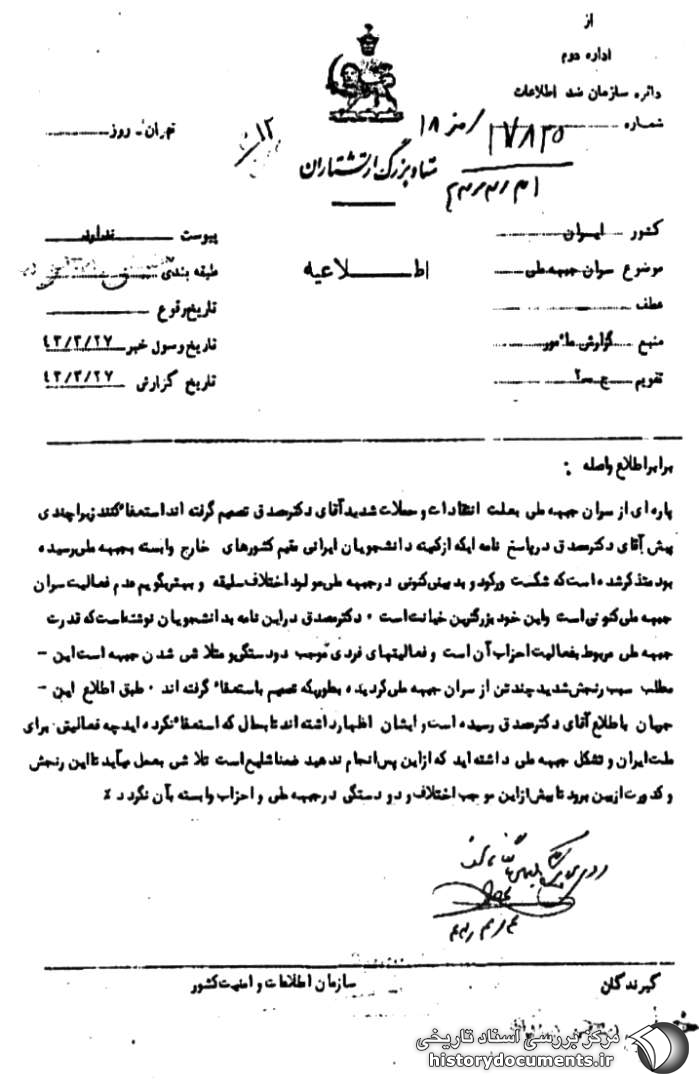 از
اداره دوم
دائره سازمان ضد اطلاعات
شماره
تهران - روز
شاه بزرگ ارتشتاران
کشور ایران
پیوست ندارد
موضوع سران جبهه ملی
اطلاعیه
طبقه بندی
عطف
تاریخ وقوع
منبع گزارش مأمور
تاریخ وصول خبر ۴۳/۳/۲۷
تقویم ج-۲
تاریخ گزارش ۴۳/۳/۲۷
برابر اطلاع واصله :
پاره ای از سران جبهه ملی بعلت انتقادات و حملات شدید آقای دکتر مصدق تصمیم گرفته اند استعفا کنند زیرا چندی
پیش آقای دکتر مصدق در پاسخ نامه ایکه از کمیته دانشجویان ایرانی مقیم کشورهای خارج وابسته بجبهه ملی رسیده
بود متذکر شده است که شکست و رکود و بدبینی کنونی در جبهه ملی مولود اختلاف سلیقه و بهتر بگویم عدم فعالیت سران
جبهه ملی کنونی است و این خود بزرگترین خیانت است ۰ دکتر مصدق در این نامه بدانشجویان نوشته است که قدرت
جبهه ملی مربوط بفعالیت احزاب آن است و فعالیتهای فردی موجب دودستگی و متلاشی شدن جبهه است این -
مطلب سبب رنجش شدید چند تن از سران جبهه ملی گردیده بطوریکه تصمیم باستعفا گرفته اند ۰ طبق اطلاع این -
جریان باطلاع آقای دکتر مصدق رسیده است و ایشان اظهار داشته اند تا بحال که استعفا نکرده اید چه فعالیتی برای
ملت ایران و تشکل جبهه ملی داشته اید که از این پس انجام ندهید ضمنا شایع است تلاشی بعمل میآید تا این رنجش
و کدورت از بین برود تا بیش از این موجب اختلاف و دو دستگی در جبهه ملی و احزاب وابسته بآن نگردد ٪
گیرندگان
سازمان اطلاعات و امنیت کشور
مرکز بررسی اسناد تاریخی
historydocuments.ir